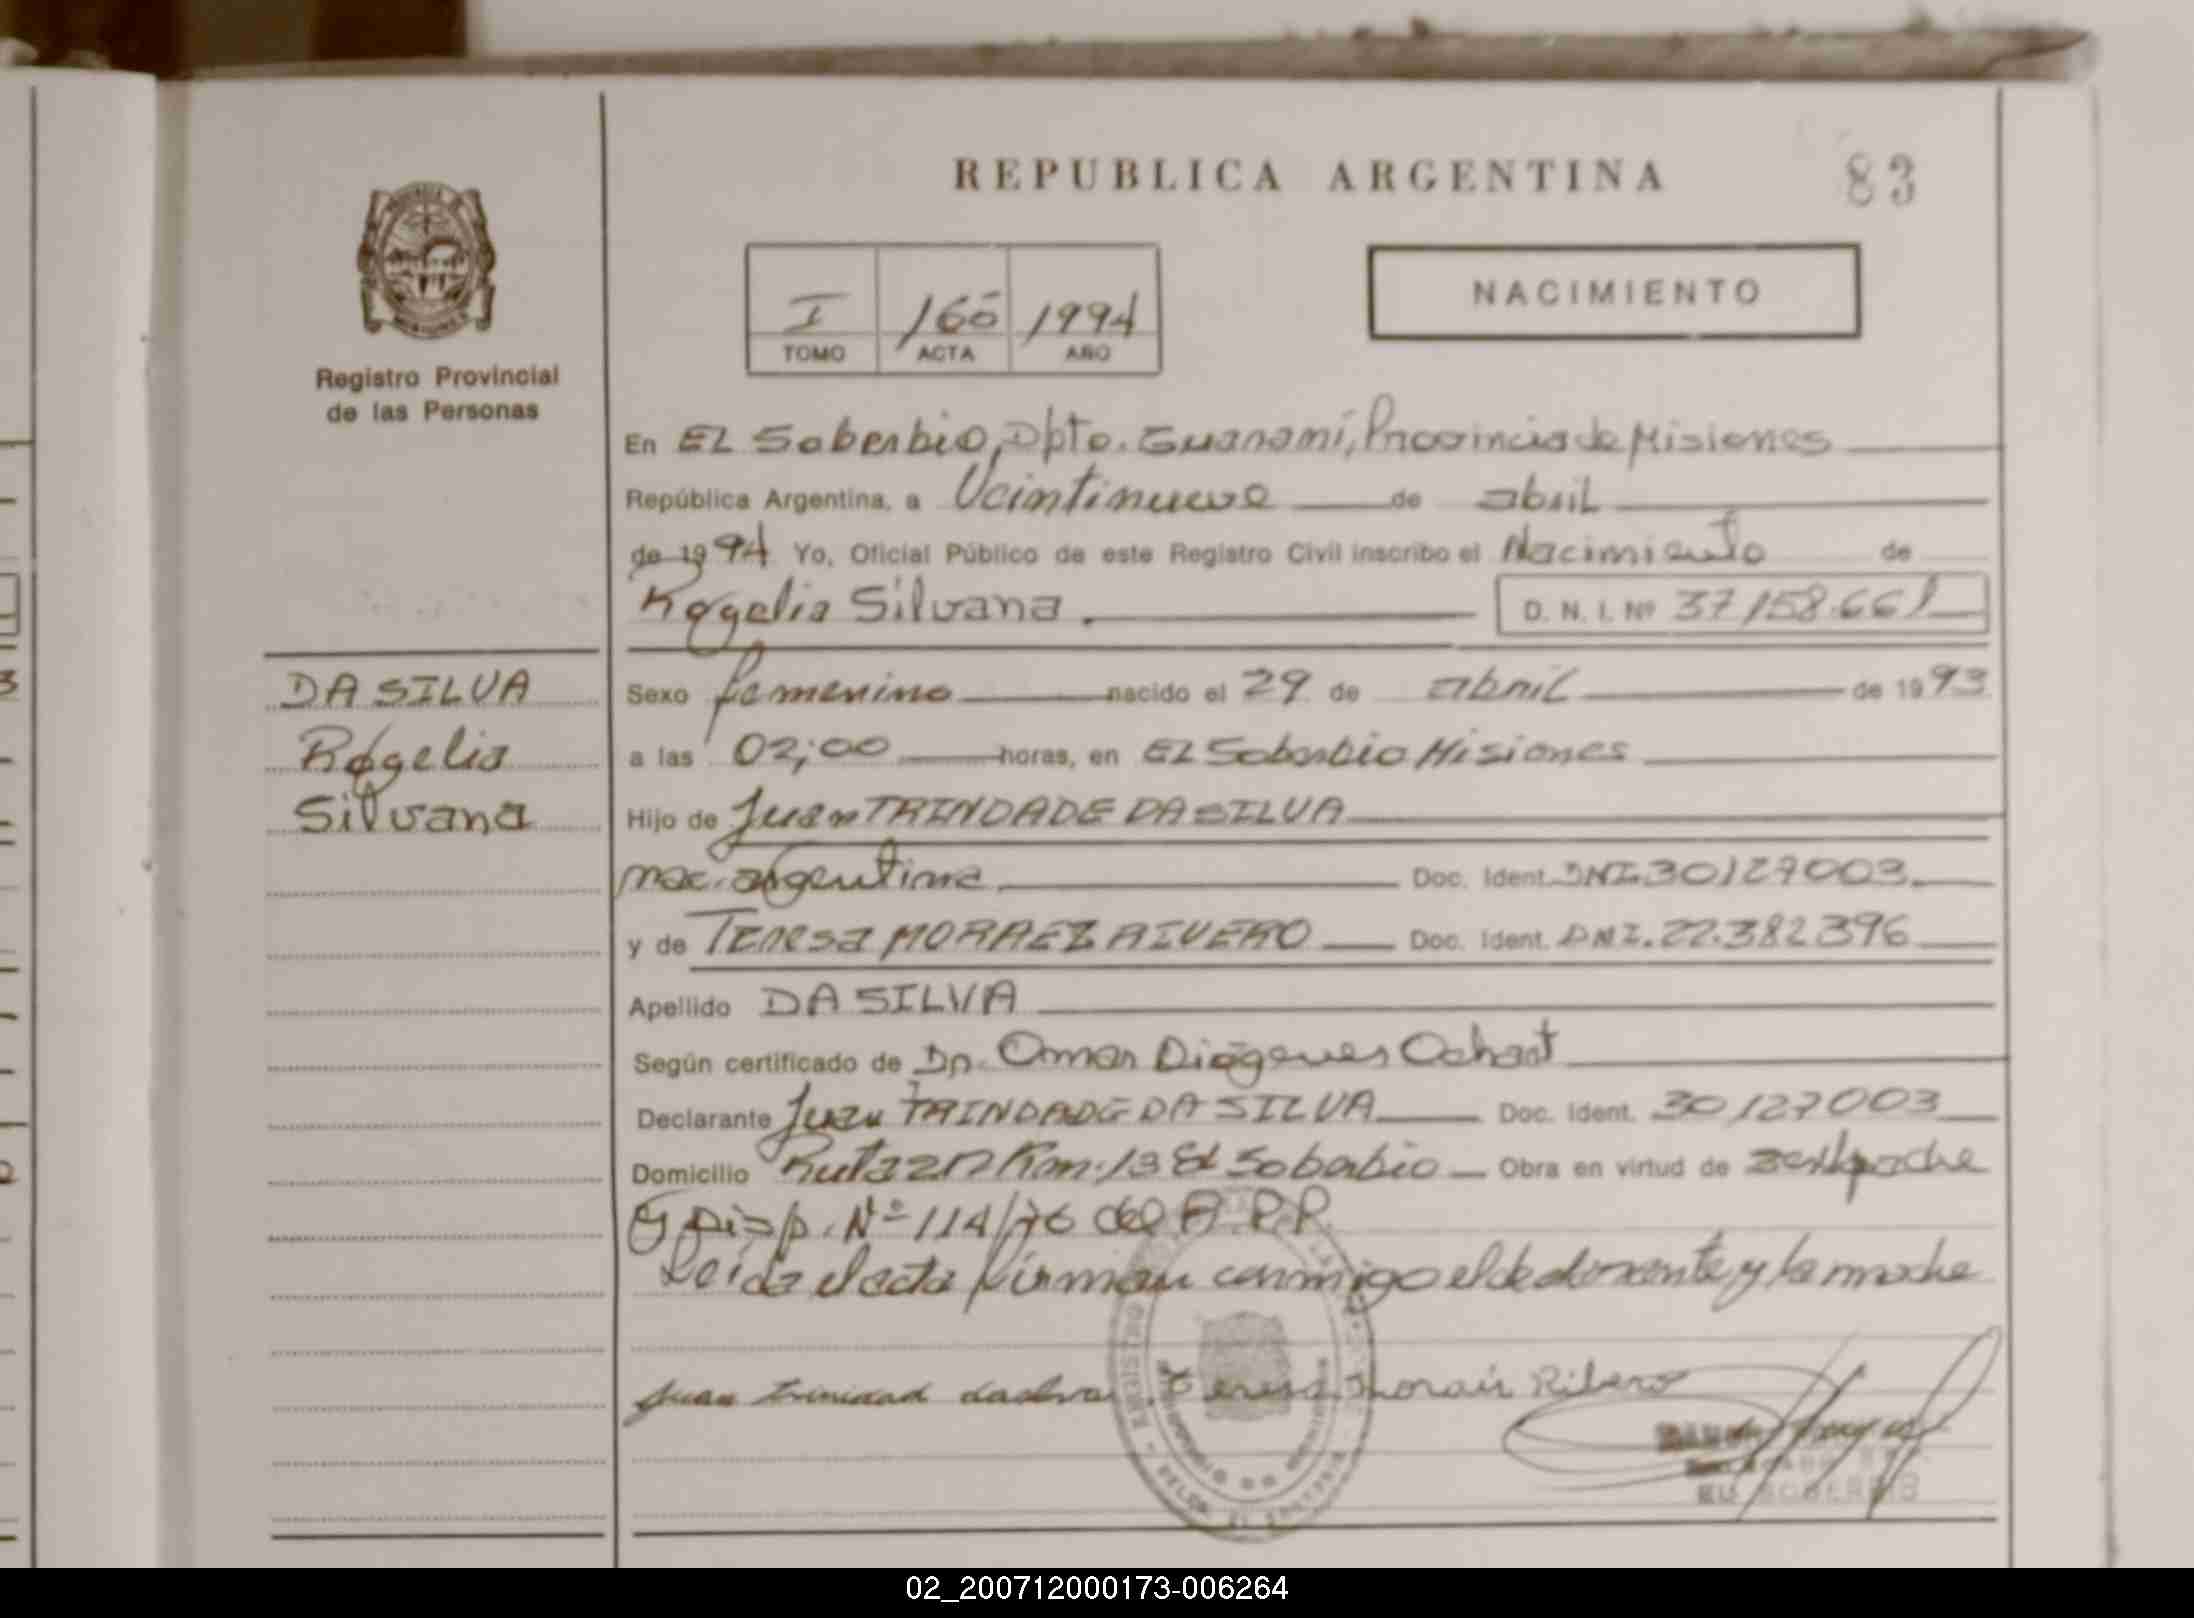 REPUBLICA ARGENTINA
83
I 1994
TOMO ACTA AÑO
NACIMIENTO
Registro Provincial
de las Personas
En EL Soberbio, Dpto. Guaraní, Provincia de Misiones
República Argentina, a Veintinueve de abril
de 1994 Yo, Oficial Público de este Registro Civil inscribo el Nacimiento de
Rogelia Silvana. D. N. I. Nº 37158.661
DA SILVA
Rogelia
Silvana
Sexo femenino nacido el 29 de abril de 1993
a las 02;00 horas, en EL Soberbio Misiones
Hijo de Juan TRINDADE DA SILVA
nac. argentina Doc. Ident. DNI.30127003.
y de Teresa MORAEZ RIVERO Doc. Ident. DNI.22.382396
Apellido DA SILVA
Según certificado de Dr. Omar Diógenes
Declarante Juan TRINDADE DA SILVA Doc. Ident. 30127003
Domicilio Ruta 2 Km.13 El Soberbio Obra en virtud de
y Disp. Nº 114/76 del R.P.P.
Leida el acta firman conmigo el declarante y la madre
Juan trinidad dasilva Teresa Morais Ribero
EL SOBERBIO
02_200712000173-006264